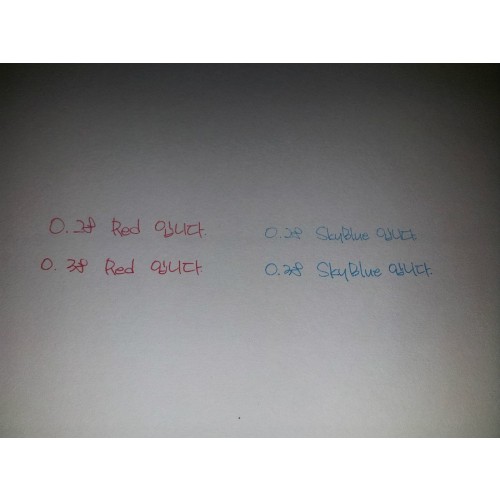 0.28 Red 입니다.
0.38 Red 입니다.
0.28 SkyBlue 입니다
0.38 SkyBlue 입니다.